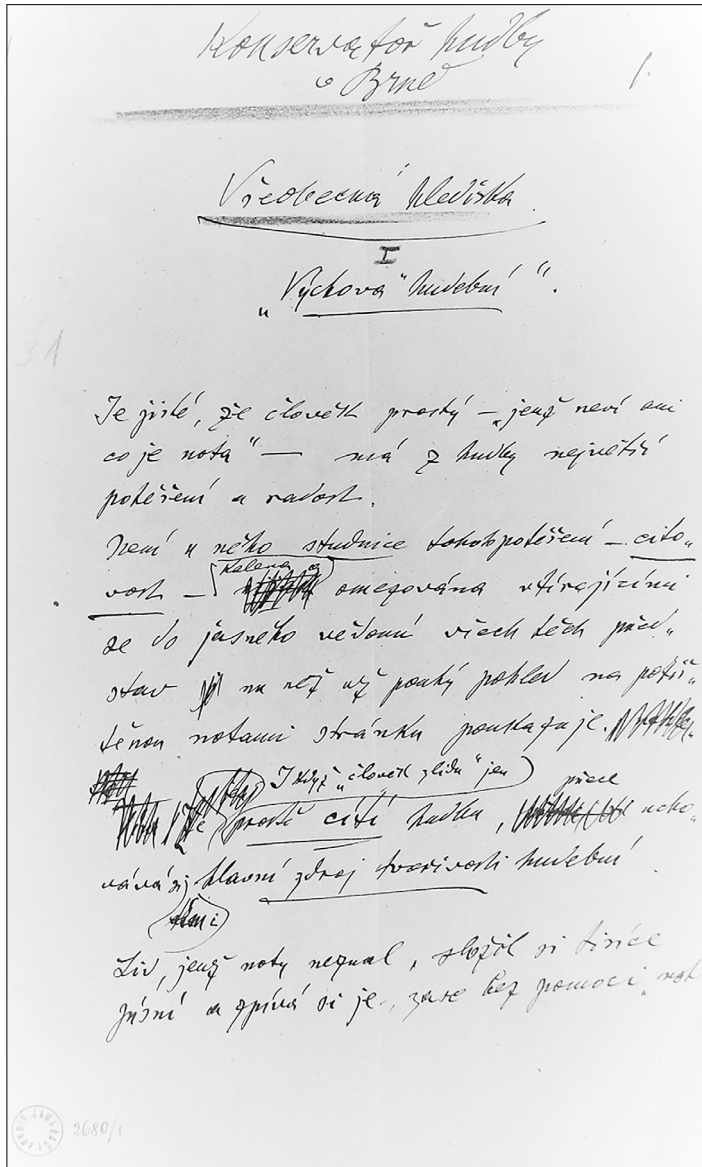 Konservatoř hudby
v Brně
1.
Všeobecná hlediska
I
„Výchova“ hudební“.
Je jisté, že člověk prostý – „jenž neví ani
co je nota“ — má z hudby největší
potěšení a radost.
Není u něho studnice tohoto potěšení – cito„
vost – kalena a omezována vtírajícími
se do jasného vědomí všech těch před„
stav na něž už pouhý pohled na potiš„
těnou notami stránku poukazuje.
I když „člověk z lidu“ jen
prostě cítí hudbu, přece ucho„
vává si hlavní zdroj tvořivosti hudební
Lid, jenž noty neznal, složil si tisíce
písní a zpívá si je, zase bez pomoci not
2680/1